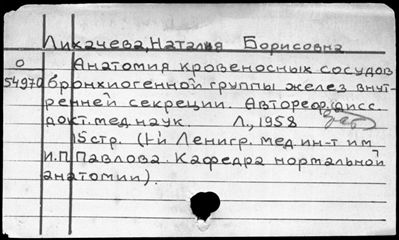 Лихачева, Наталия Борисовна
О Анатомия кровеносных сосудов
54970 бронхиогенной группы желез внут-
ренней секреции. Автореф. дисс.
докт. мед. наук. Л., 1958
15 стр. (1-й Ленигр. мед. ин-т им
И.П. Павлова. Кафедра нормальной
анатомии).